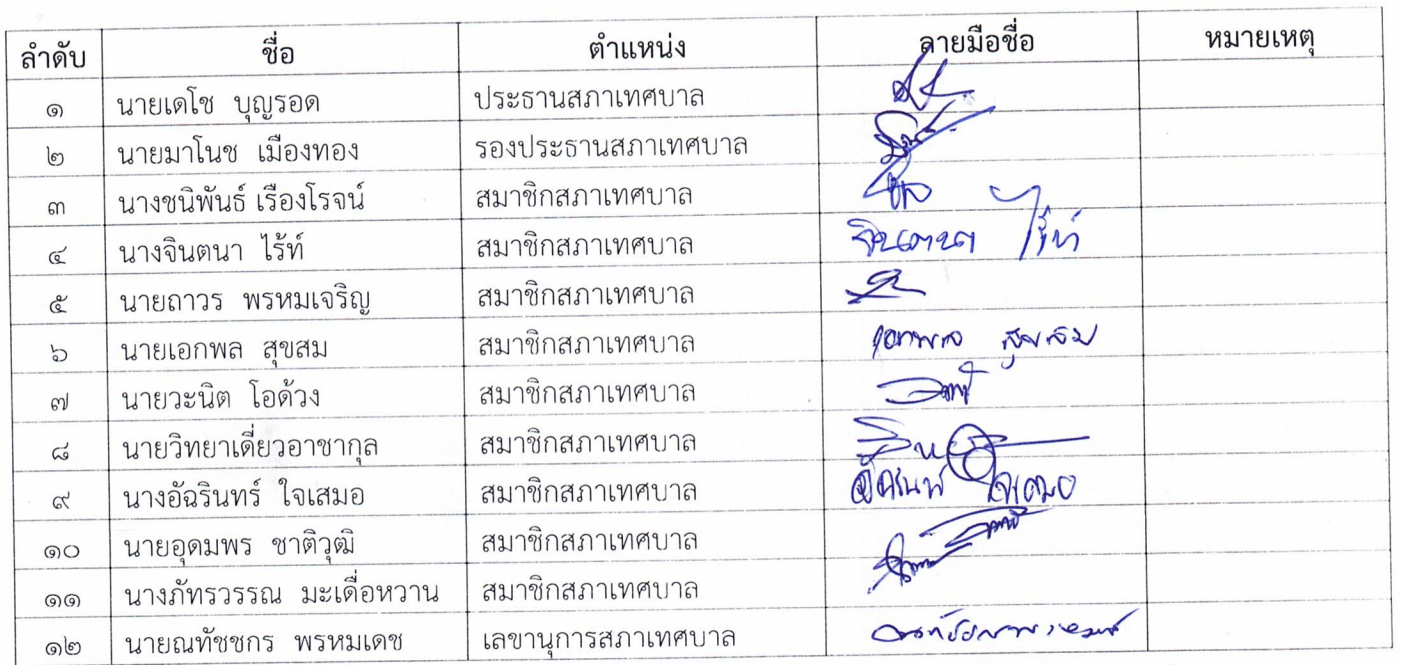 ลำดับ ชื่อ ตำแหน่ง ลายมือชื่อ หมายเหตุ
๑ นายเดโช บุญรอด ประธานสภาเทศบาล
๒ นายมาโนช เมืองทอง รองประธานสภาเทศบาล
๓ นางชนิพันธ์ เรืองโรจน์ สมาชิกสภาเทศบาล
๔ นางจินตนา ไร้ท์ สมาชิกสภาเทศบาล จินตนา ไร้ท์
๕ นายถาวร พรหมเจริญ สมาชิกสภาเทศบาล
๖ นายเอกพล สุขสม สมาชิกสภาเทศบาล เอกพล สุขสม
๗ นายวะนิต โอด้วง สมาชิกสภาเทศบาล
๘ นายวิทยาเดี่ยวอาชากุล สมาชิกสภาเทศบาล
๙ นางอัฉรินทร์ ใจเสมอ สมาชิกสภาเทศบาล
๑๐ นายอุดมพร ชาติวุฒิ สมาชิกสภาเทศบาล
๑๑ นางภัทรวรรณ มะเดื่อหวาน สมาชิกสภาเทศบาล
๑๒ นายณทัชชกร พรหมเดช เลขานุการสภาเทศบาล